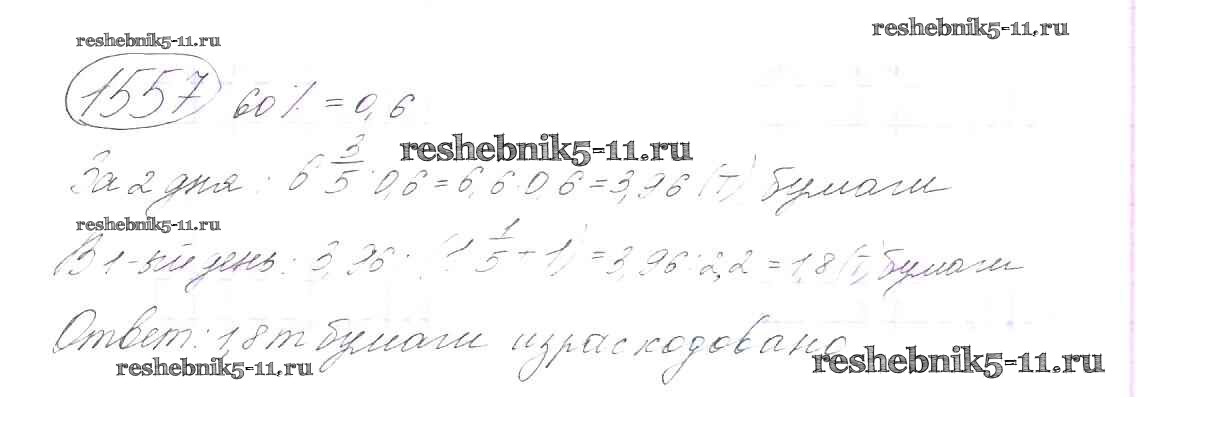 reshebnik5-11.ru
reshebnik5-11.ru
1557 60% = 0,6
reshebnik5-11.ru
За 2 дня: 6 3/5 · 0,6 = 6,6 · 0,6 = 3,96 (т) бумаги
reshebnik5-11.ru
В 1-ый день: 3,96 : (1 1/5 + 1) = 3,96 : 2,2 = 1,8 (т) бумаги
Ответ: 1,8 т бумаги израсходовано
reshebnik5-11.ru
reshebnik5-11.ru